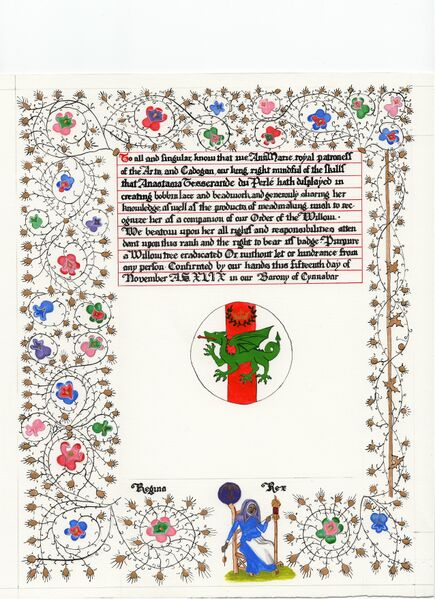 To all and singular, know that we AnnMarie royal patroness
of the Arts, and Cadogan, our king, right mindful of the skills
that Anastasia Tesserande du Perle hath displayed in
creating bobbin lace and beadwork, and generously sharing her
knowledge, as well as the products of meadmaking, wish to rec-
ognize her as a companion of our Order of the Willow.
We bestow upon her all rights and responsibilities atten
dant upon this rank and the right to bear its badge Purpure
a Willow tree eradicated Or without let or hindrance from
any person. Confirmed by our hands this fifteenth day of
November AS XLIX in our Barony of Cynnabar
Regina Rex